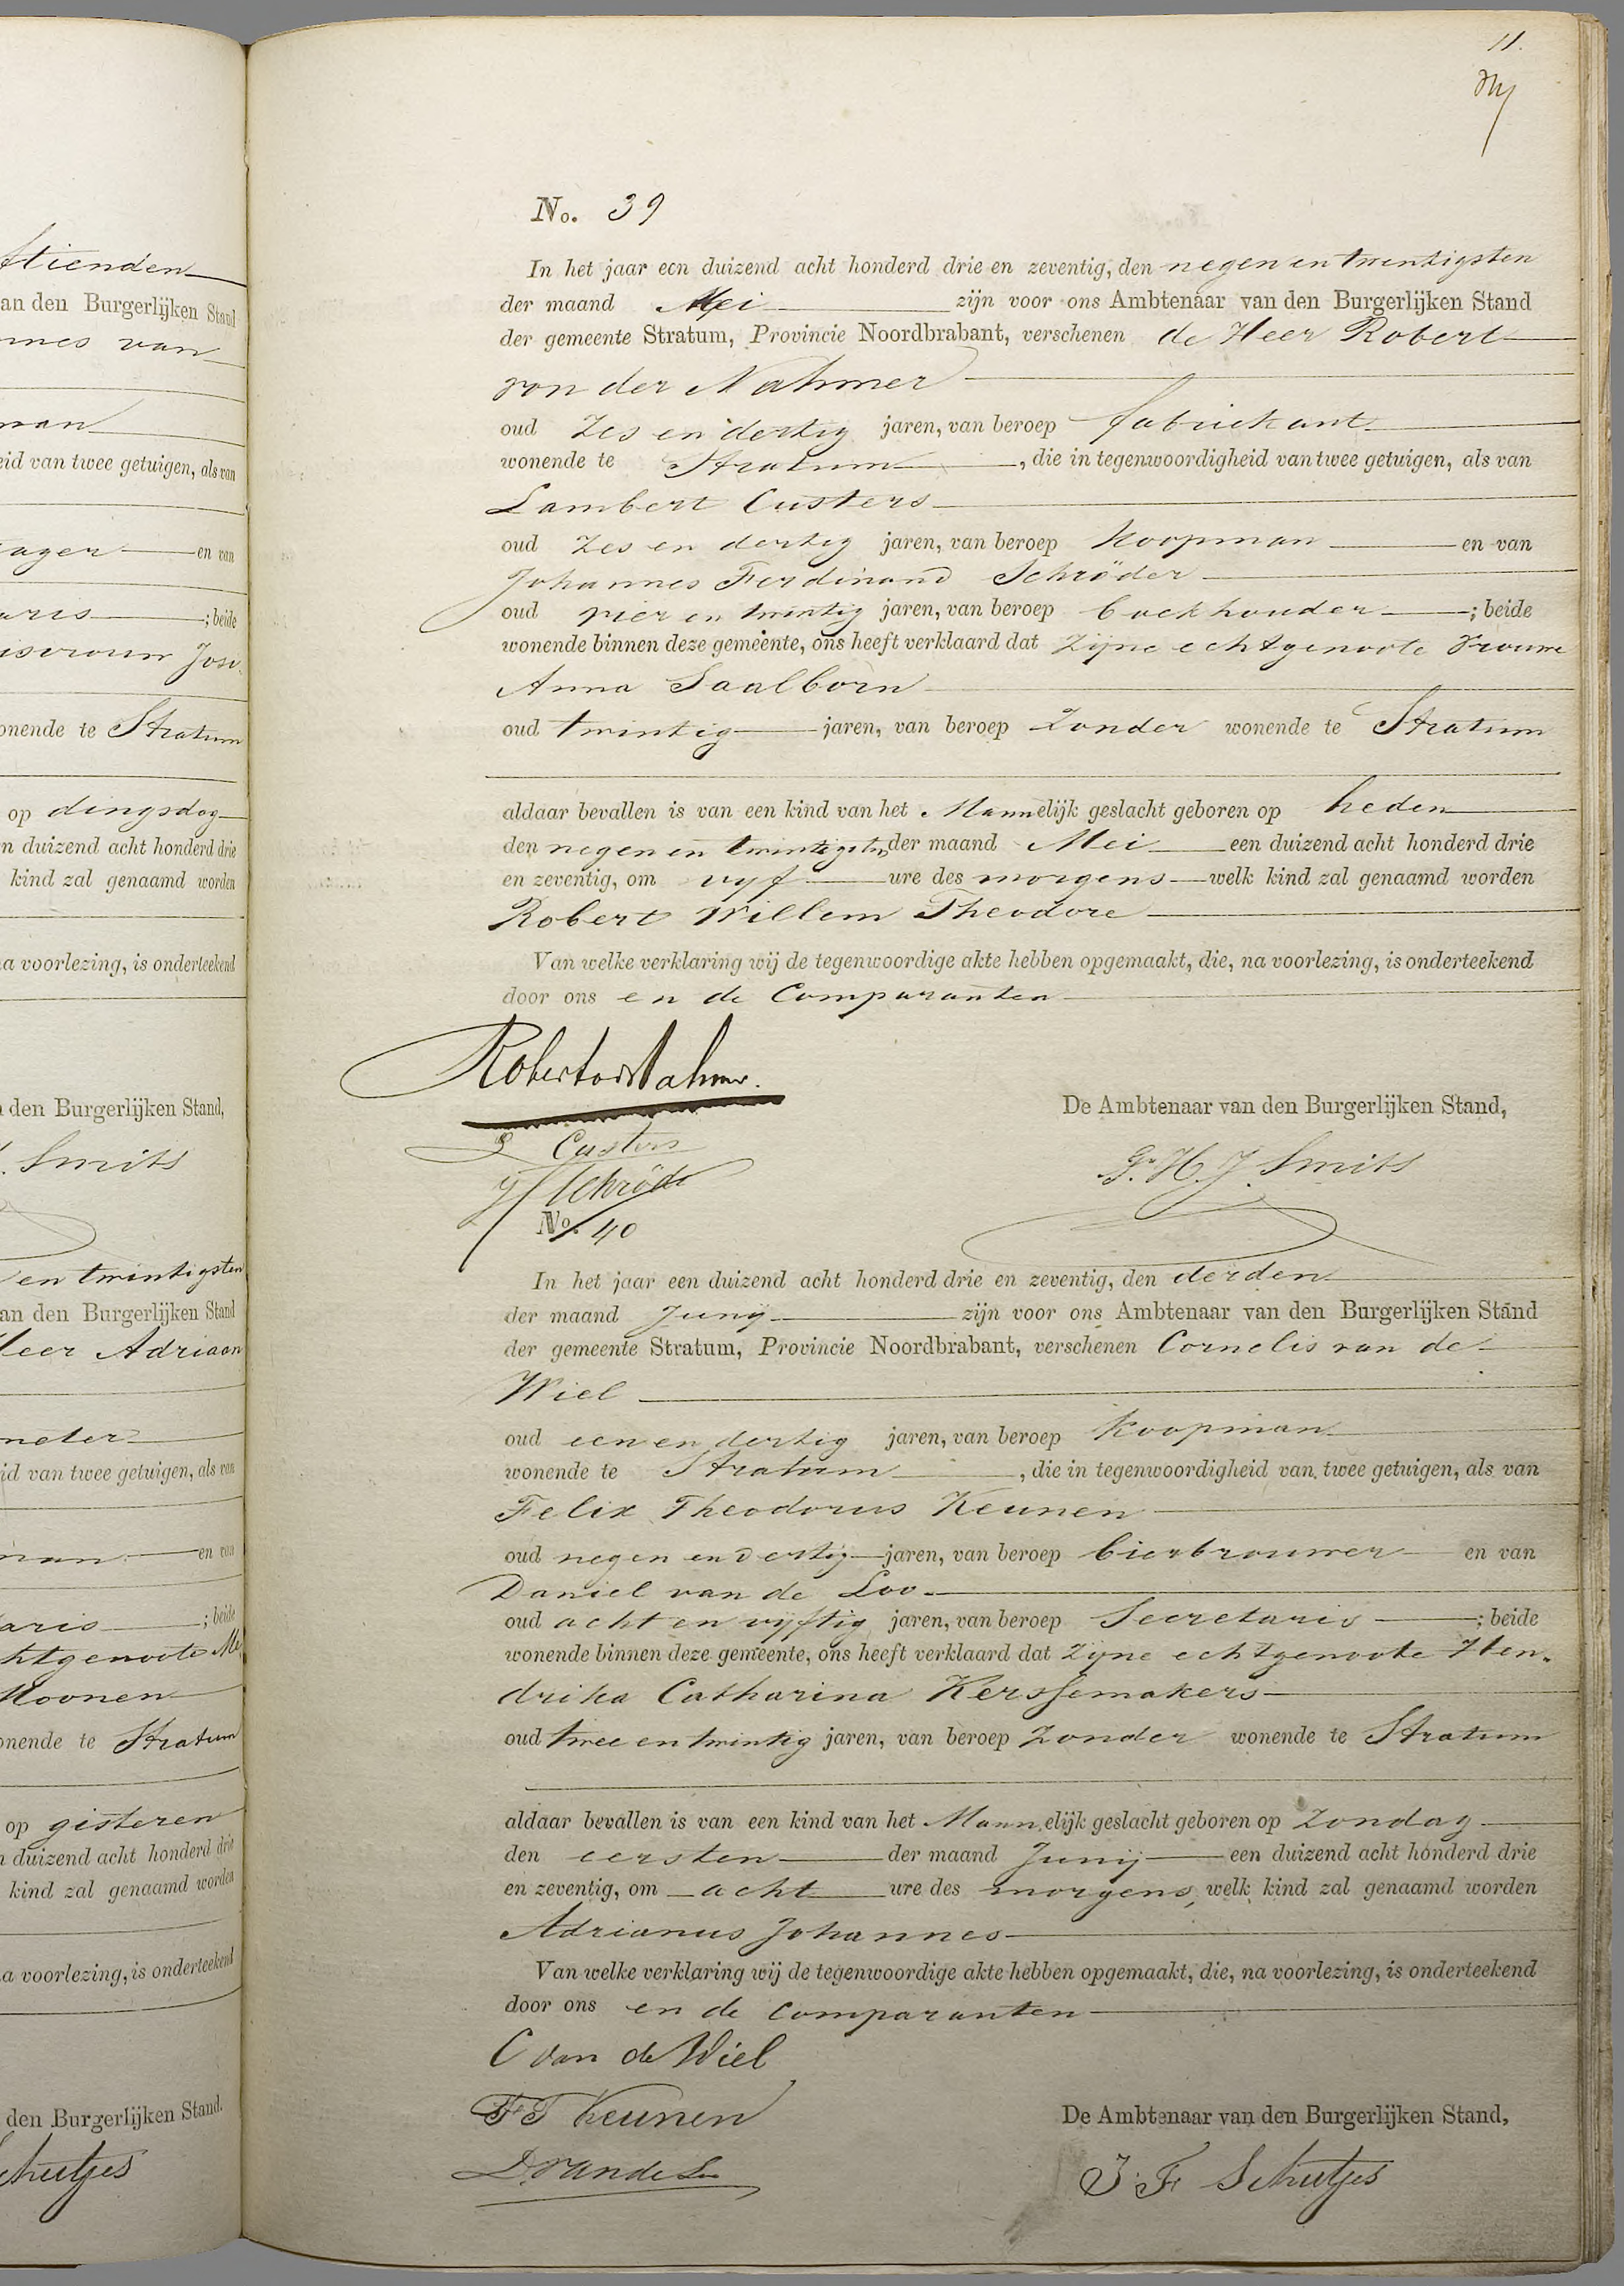 ftienden
an den Burgerlijken Stand
nnes van
man
eid van twee getuigen, als van
ager en van
aris ; beide
Jose
onende te Stratum
op dingsdag
n duizend acht honderd drie
kind zal genaamd worden
a voorlezing, is onderteekend
den Burgerlijken Stand,
Smits
en twintigsten
an den Burgerlijken Stand
Heer Adriaan
meter
id van twee getuigen, als van
man en van
aris ; beide
htgenoote Me
Moonen
onende te Stratum
op gisteren
n duizend acht honderd drie
kind zal genaamd worden
a voorlezing, is onderteekend
den Burgerlijken Stand.
Schutjes
11.
No. 39
In het jaar een duizend acht honderd drie en zeventig, den negen en twentigsten
der maand Mei zijn voor ons Ambtenaar van den Burgerlijken Stand
der gemeente Stratum, Provincie Noordbrabant, verschenen de Heer Robert
von der Nahmer
oud Zes en dertig jaren, van beroep fabriekant
wonende te Stratum, die in tegenwoordigheid van twee getuigen, als van
Lambert Custers
oud Zes en dertig jaren, van beroep Koopman en van
Johannes Ferdinand Schröder
oud vier en twintig jaren, van beroep boekhouder ; beide
wonende binnen deze gemeente, ons heeft verklaard dat Zijne echtgenoote Vrouwe
Anna Saalborn
oud twintig jaren, van beroep Zonder wonende te Stratum
aldaar bevallen is van een kind van het Mannelijk geslacht geboren op heden
den negen en twintigsten der maand Mei een duizend acht honderd drie
en zeventig, om vyf ure des morgens welk kind zal genaamd worden
Robert Willem Theodore
Van welke verklaring wij de tegenwoordige akte hebben opgemaakt, die, na voorlezing, is onderteekend
door ons en de Comparanten
Robert vdNahmer.
De Ambtenaar van den Burgerlijken Stand,
L Custers
G. H. J. Smits
JF Schröder
No. 40
In het jaar een duizend acht honderd drie en zeventig, den derden
der maand Junij zijn voor ons Ambtenaar van den Burgerlijken Stand
der gemeente Stratum, Provincie Noordbrabant, verschenen Cornelis van de
Wiel
oud een en dertig jaren, van beroep Koopman
wonende te Stratum, die in tegenwoordigheid van twee getuigen, als van
Felix Theodorus Keunen
oud negen en dertig jaren, van beroep bierbrouwer en van
Daniel van de Loo
oud acht en vyftig jaren, van beroep Secretaris ; beide
wonende binnen deze gemeente, ons heeft verklaard dat Zijne echtgenoote Hen-
drika Catharina Kerssemakers
oud twee en twintig jaren, van beroep Zonder wonende te Stratum
aldaar bevallen is van een kind van het Mannelijk geslacht geboren op Zondag
den eersten der maand Junij een duizend acht honderd drie
en zeventig, om acht ure des morgens, welk kind zal genaamd worden
Adrianus Johannes
Van welke verklaring wij de tegenwoordige akte hebben opgemaakt, die, na voorlezing, is onderteekend
door ons en de comparanten
C van de Wiel
F T Keunen
De Ambtenaar van den Burgerlijken Stand,
D. van de Loo
J. F Schutjes